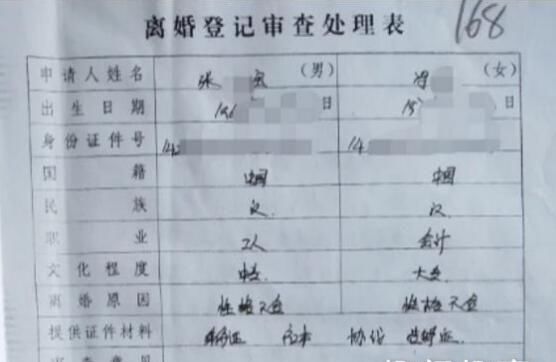 离婚登记审查处理表 168
申请人姓名 张 (男) (女)
出生日期 196 日 19 日
身份证件号 142 14
国籍 中国 中国
民族 汉 汉
职业 工人 会计
文化程度 中专 大专
离婚原因 性格不合 性格不合
提供证件材料 身份证 户口本 协议 结婚证